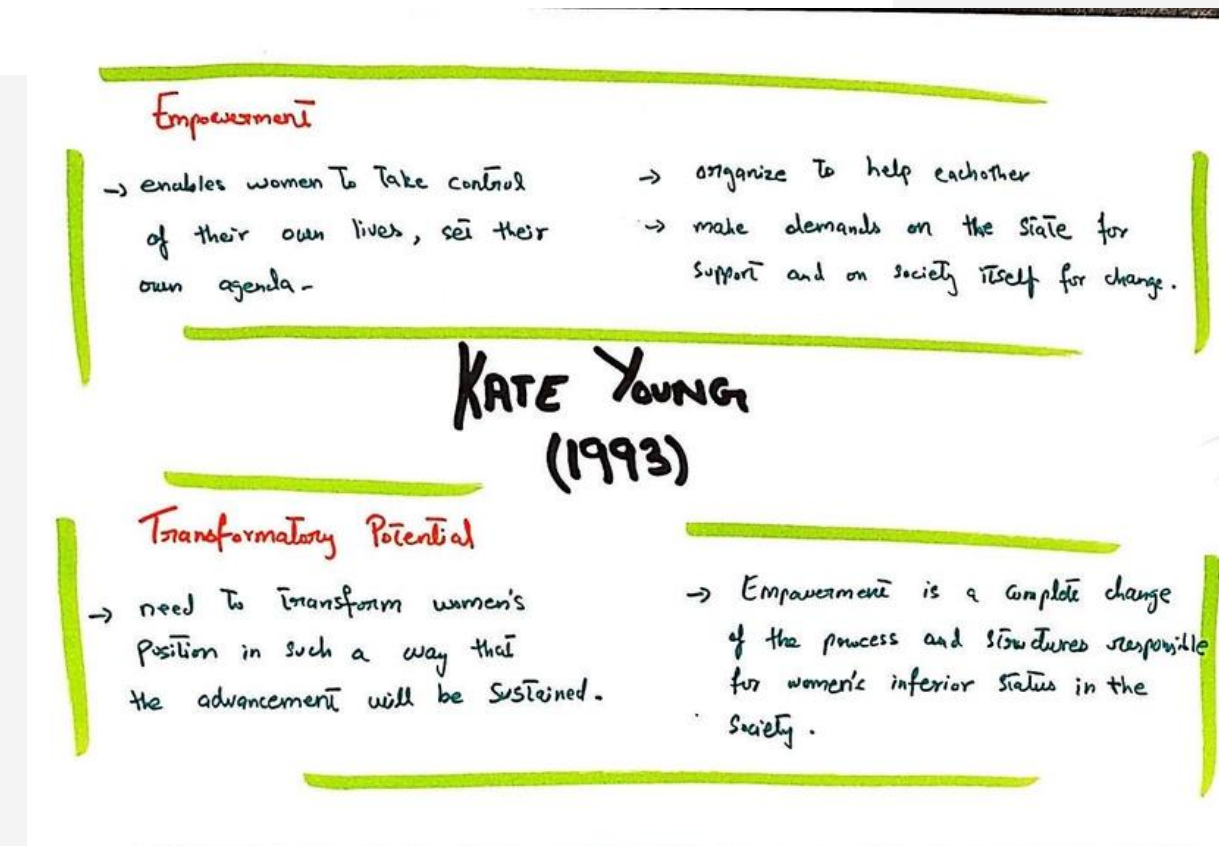 Empowerment
→ enables women to take control
of their own lives, set their
own agenda -
→ organize to help eachother
→ make demands on the state for
support and on society itself for change.
KATE YOUNG
(1993)
Transformatory Potential
→ need to transform women's
position in such a way that
the advancement will be sustained.
→ Empowerment is a complete change
of the process and structures responsible
for women's inferior status in the
society.